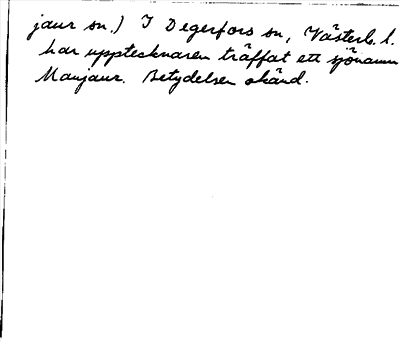 jaur sn.) I Degerfors sn, Västerb. l.
har upptecknaren träffat ett sjönamn
Manjaur. Betydelsen okänd.